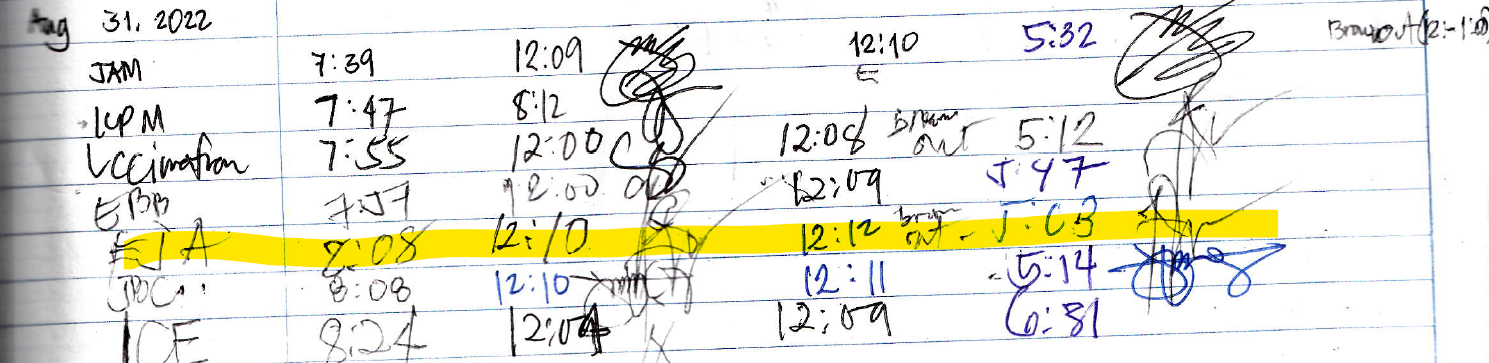 Aug 31, 2022
JAM 7:39 12:09 12:10 5:32 Brownout (12:-1:00)
E
KPM 7:47 8:12
7:55 12:00 12:08 Brown out 5:12
EBB 7:57 12:00 12:09 5:47
EJA 8:08 12:10 12:12 brown out - 5:03
JBC 8:08 12:10 12:11 5:14
ICE 8:24 12:04 12:09 6:31